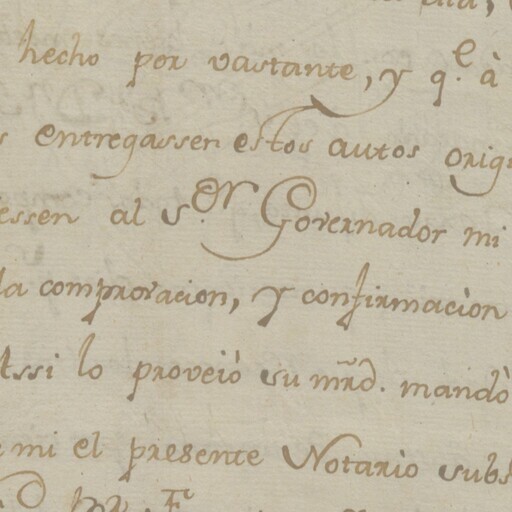 hecho por vastante, y q.e à
entregassen estos autos orig
essen al s.or Governador mi
la comprovacion, y confirmaciòn
Assi lo proveiò su mrd. mandò
mi el presente Notario subs